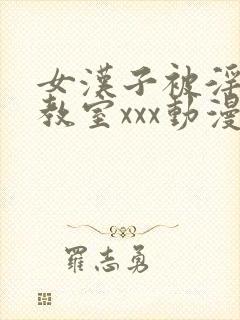 女漢子被淫
教室xxx動漫
羅志勇